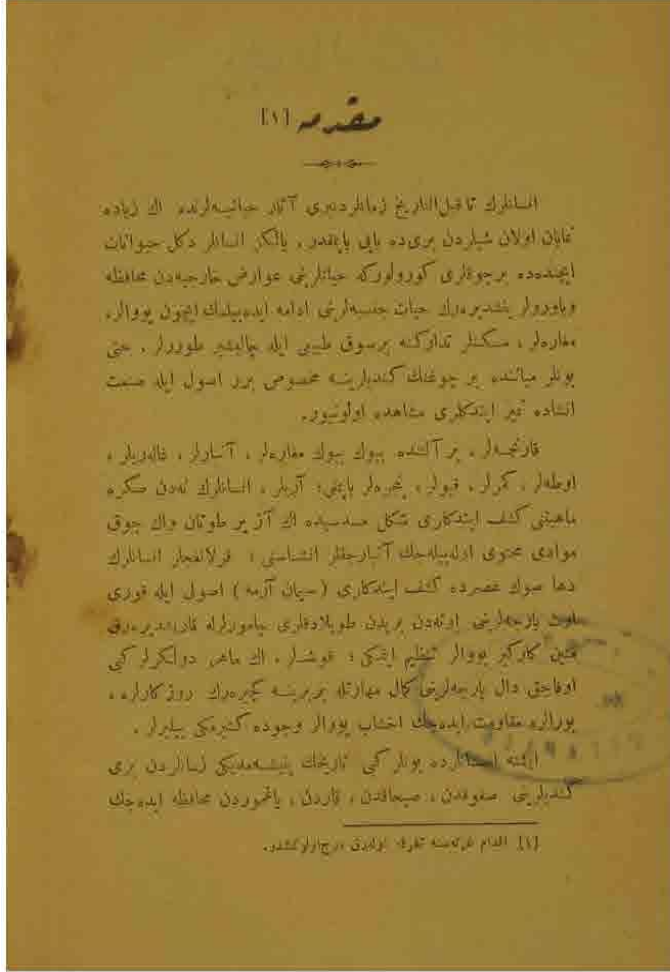 مقدمه [١]
انسانلرك ماقبل‌التاريخ زمانلردنبرى آثار حياتيه‌لرنده اك زياده
نمايان اولان شيلردن برى‌ده ياپى ياپمقدر. يالكز انسانلر دكل حيوانات
ايچنده‌ده برچوقلرى كورولوركه حياتلرينى عوارض خارجيه‌دن محافظه
وياورولر يتشديره‌رك حيات جنسيه‌لرينى ادامه ايده‌بيلمك ايچون يووالر،
مغاره‌لر، مسكنلر تداركنه برسوق طبيعى ايله چاليشير طوررلر. حتى
بونلر مياننده بر چوغنك كنديلرينه مخصوص برر اصول ايله صنعت
انشاده تميز ايتدكلرى مشاهده اولونيور.
قارنجه‌لر، ير آلتنده بيوك بيوك مغاره‌لر، آنبارلر، غاله‌ريلر،
اوطه‌لر، كمرلر، قپولر، پنجره‌لر ياپمنى؛ آريلر، انسانلرك نه‌دن صكره
ماهيتنى كشف ايتدكلرى شكل مسدسيده اك آز ير طوتان واك چوق
موادى محتوى اوله‌بيله‌جك آنبارجقلر انشاسنى؛ قرلانغجلر انسانلرك
دها صوك عصرده كشف ايتدكلرى (سيمان آرمه) اصولى ايله قورى
اوت پارچه‌لرينى اوته‌دن بريدن طوپلادقلرى چامورلرله قاريشديره‌رق
متين كاركير يووالر تنظيم ايتمكى؛ قوشلر، اك ماهر دولكرلر كبى
اوفاجق دال پارچه‌لرينى كمال مهارتله بربرينه كچيره‌رك روزكارلره،
بورالره مقاومت ايده‌جك اخشاب يووالر وجوده كتيرمكى بيليرلر.
ايشته انسانلرده بونلر كبى تاريخك يتيشه‌مديكى زمانلردن برى
كنديلرينى صغوقدن، صيجاقدن، قاردن، ياغموردن محافظه ايده‌جك
[١] اقدام غزته‌سنه تفرقه اوله‌رق درج اولونمشدر.